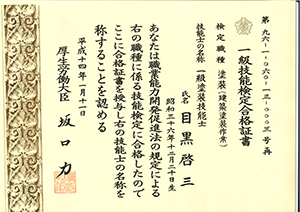 第九六-一-〇六〇-一三-〇〇〇三号再
一級技能検定合格証書
検定職種 塗装(建築塗装作業)
技能士の名称 一級塗装技能士
氏名 目黒啓三
昭和三十六年十二月二十日生
あなたは職業能力開発促進法の規定による
右の職種に係る技能検定に合格したので
ここに合格証書を授与し右の技能士の名称を
称することを認める
平成十四年一月十一日
厚生労働大臣 坂口力